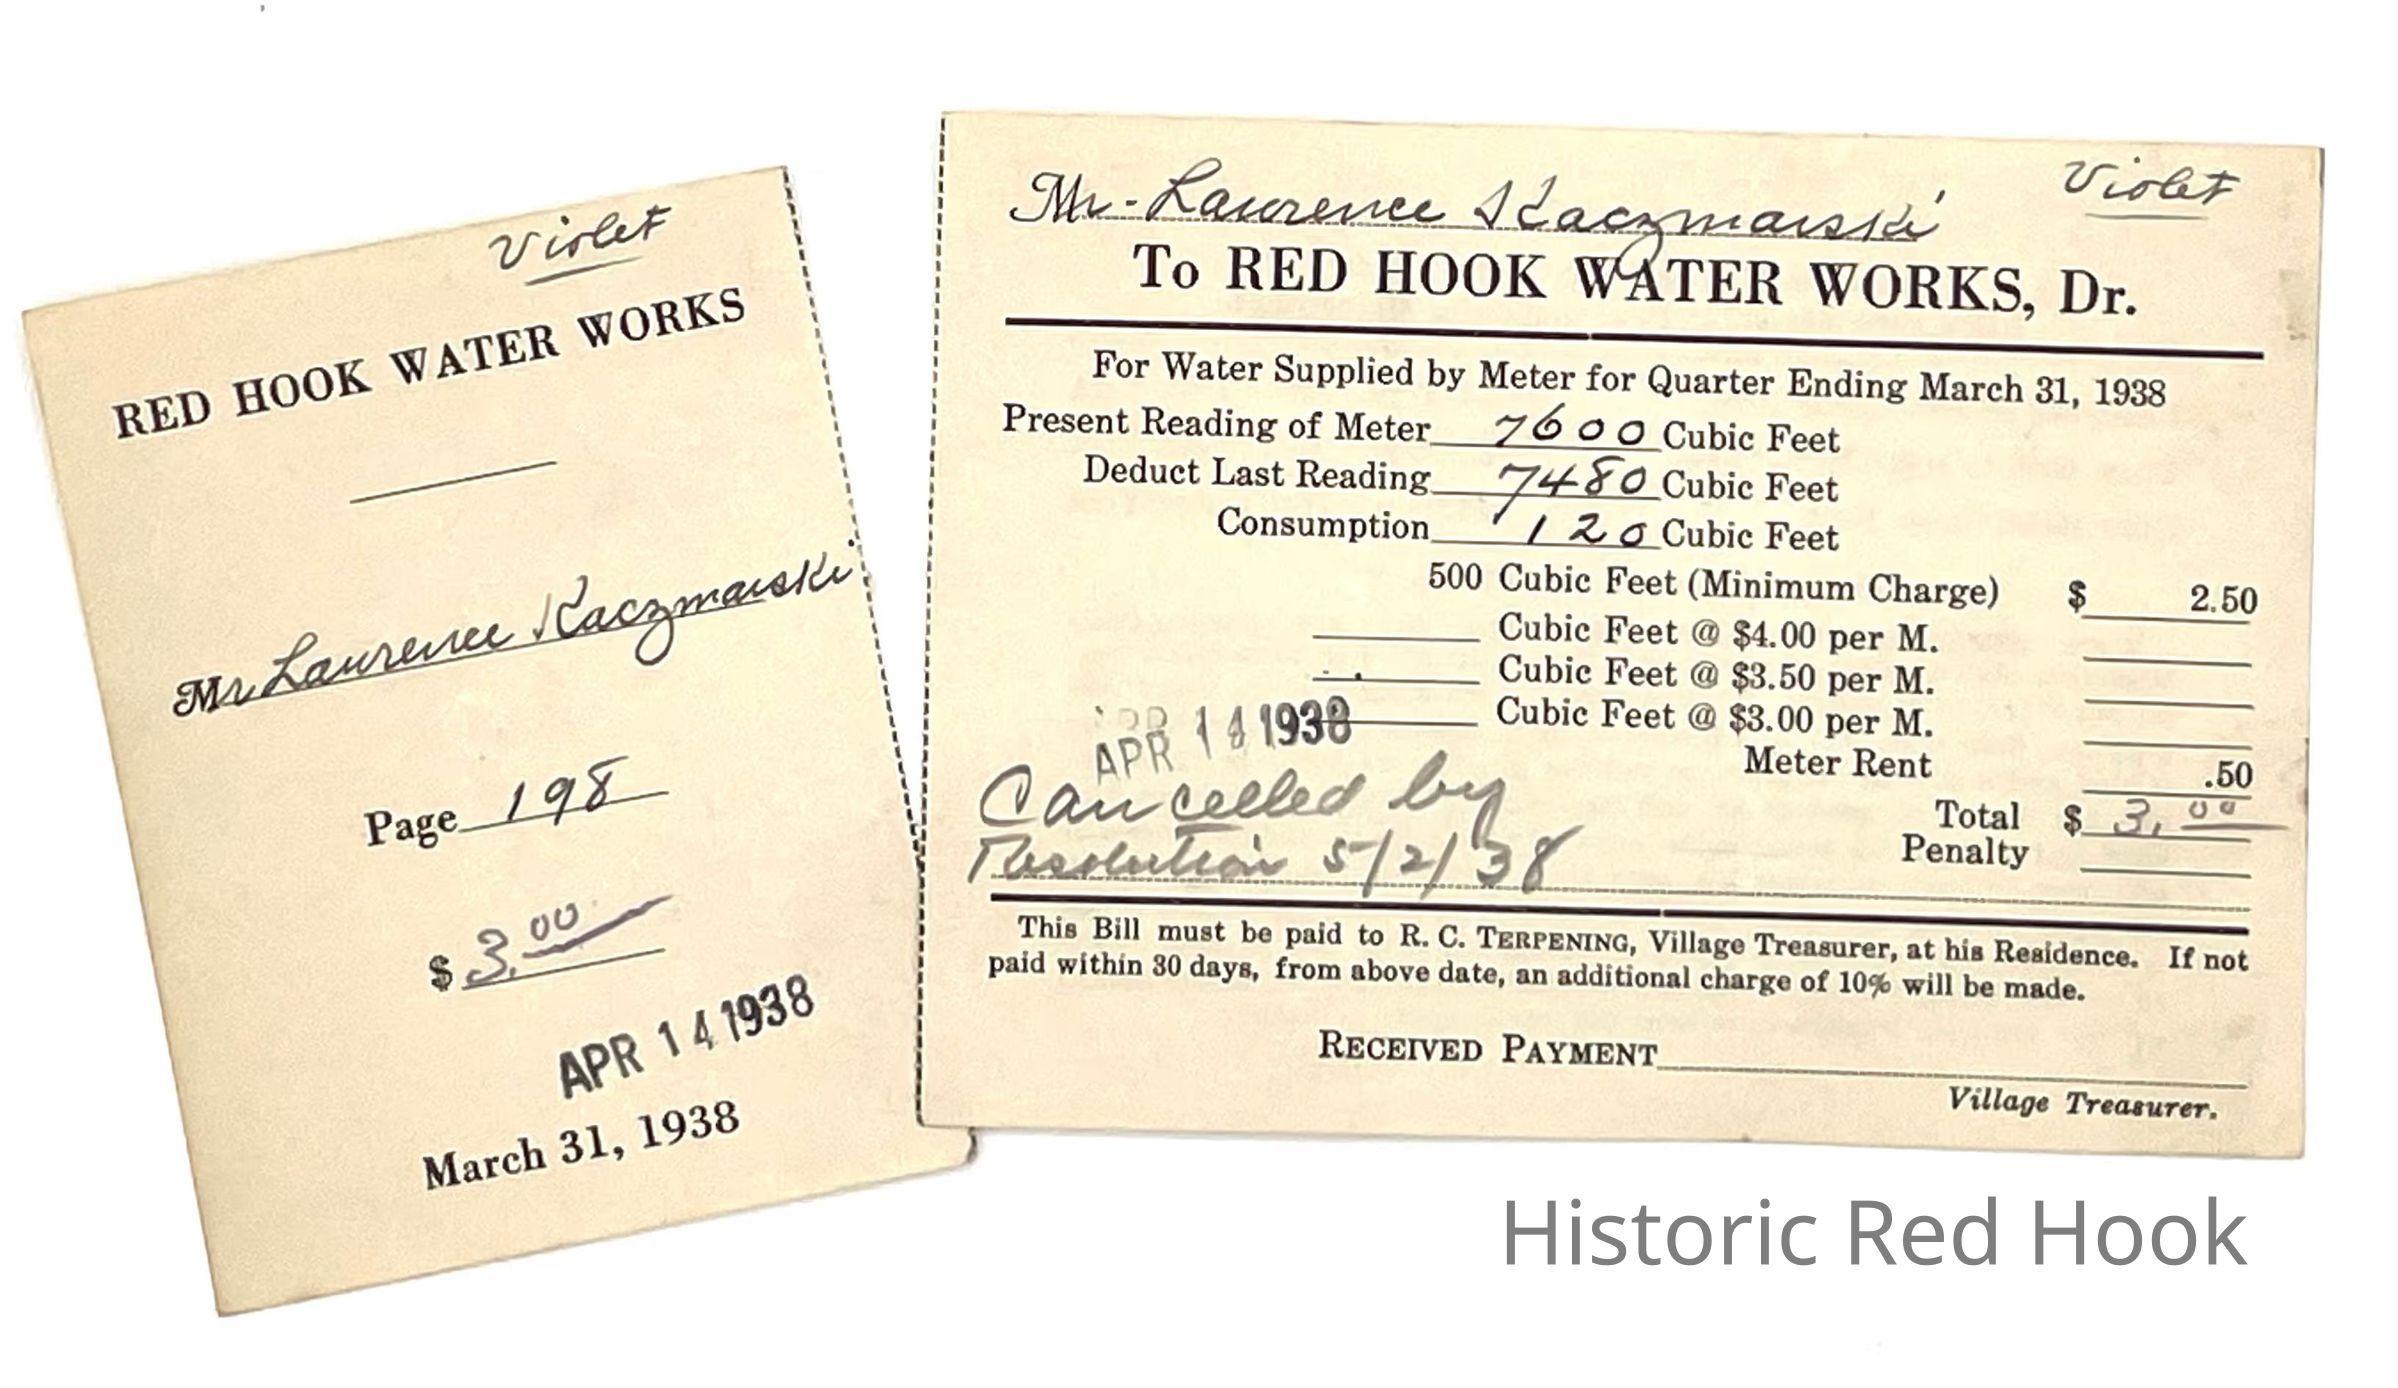 Violet
RED HOOK WATER WORKS
Mr Laurence Kaczmarski
Page 198
$ 3.00
APR 14 1938
March 31, 1938
Mr. Laurence Kaczmarski
Violet
To RED HOOK WATER WORKS, Dr.
For Water Supplied by Meter for Quarter Ending March 31, 1938
Present Reading of Meter 7600 Cubic Feet
Deduct Last Reading 7480 Cubic Feet
Consumption 120 Cubic Feet
500 Cubic Feet (Minimum Charge) $ 2.50
Cubic Feet @ $4.00 per M.
Cubic Feet @ $3.50 per M.
Cubic Feet @ $3.00 per M.
APR 14 1938
Meter Rent .50
Cancelled by
Total $ 3.00
Resolution 5/2/38
Penalty
This Bill must be paid to R. C. TERPENING, Village Treasurer, at his Residence. If not
paid within 30 days, from above date, an additional charge of 10% will be made.
RECEIVED PAYMENT
Village Treasurer.
Historic Red Hook